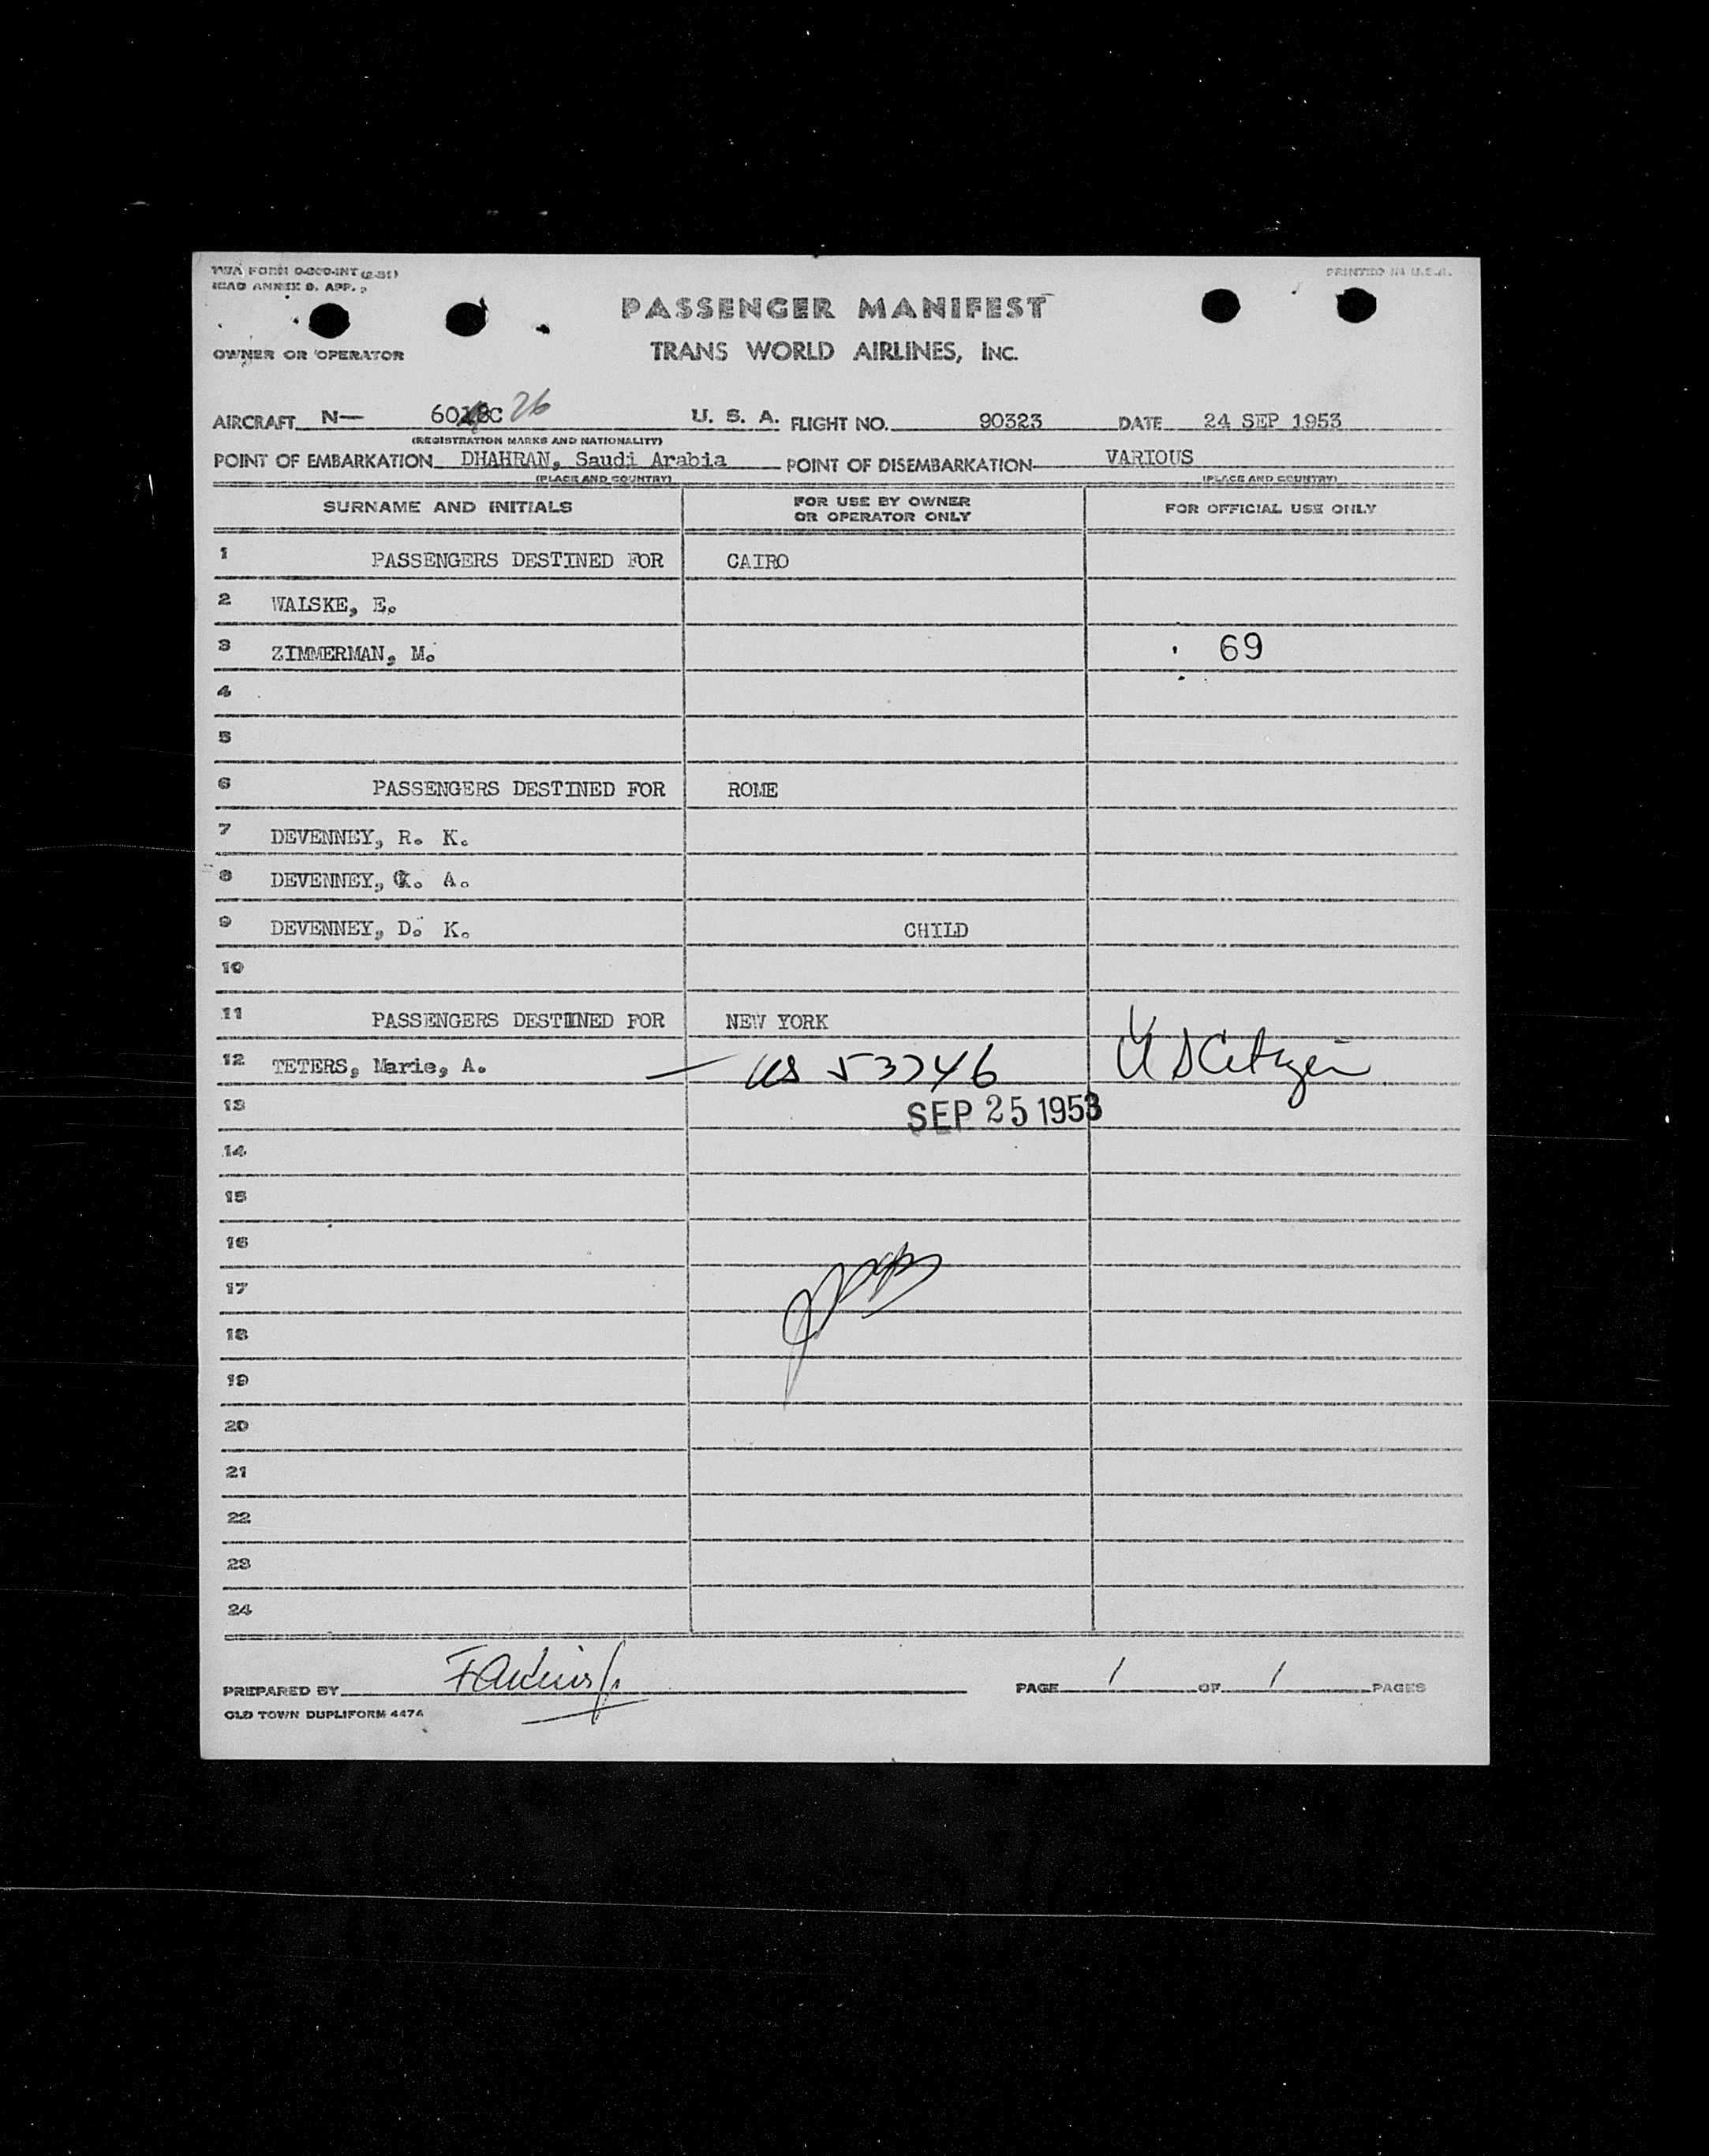 TWA FORM O-800-INT (2-51)
ICAO ANNEX 9. APP.
PRINTED IN U.S.A.
PASSENGER MANIFEST
OWNER OR OPERATOR
TRANS WORLD AIRLINES, INC.
AIRCRAFT N— 26 U. S. A. FLIGHT NO. 90323 DATE 24 SEP 1953
(REGISTRATION MARKS AND NATIONALITY)
POINT OF EMBARKATION DHAHRAN, Saudi Arabia POINT OF DISEMBARKATION VARIOUS
(PLACE AND COUNTRY) (PLACE AND COUNTRY)
SURNAME AND INITIALS FOR USE BY OWNER OR OPERATOR ONLY FOR OFFICIAL USE ONLY
1 PASSENGERS DESTINED FOR CAIRO
2 WALSKE, E.
3 ZIMMERMAN, M. 69
4
5
6 PASSENGERS DESTINED FOR ROME
7 DEVENNEY, R. K.
8 DEVENNEY, A.
9 DEVENNEY, D. K. CHILD
10
11 PASSENGERS DESTINED FOR NEW YORK
12 TETERS, Marie, A. — US 53746 US Citizen
13 SEP 25 1953
14
15
16
17
18
19
20
21
22
23
24
PREPARED BY PAGE 1 OF 1 PAGES
OLD TOWN DUPLIFORM 4474